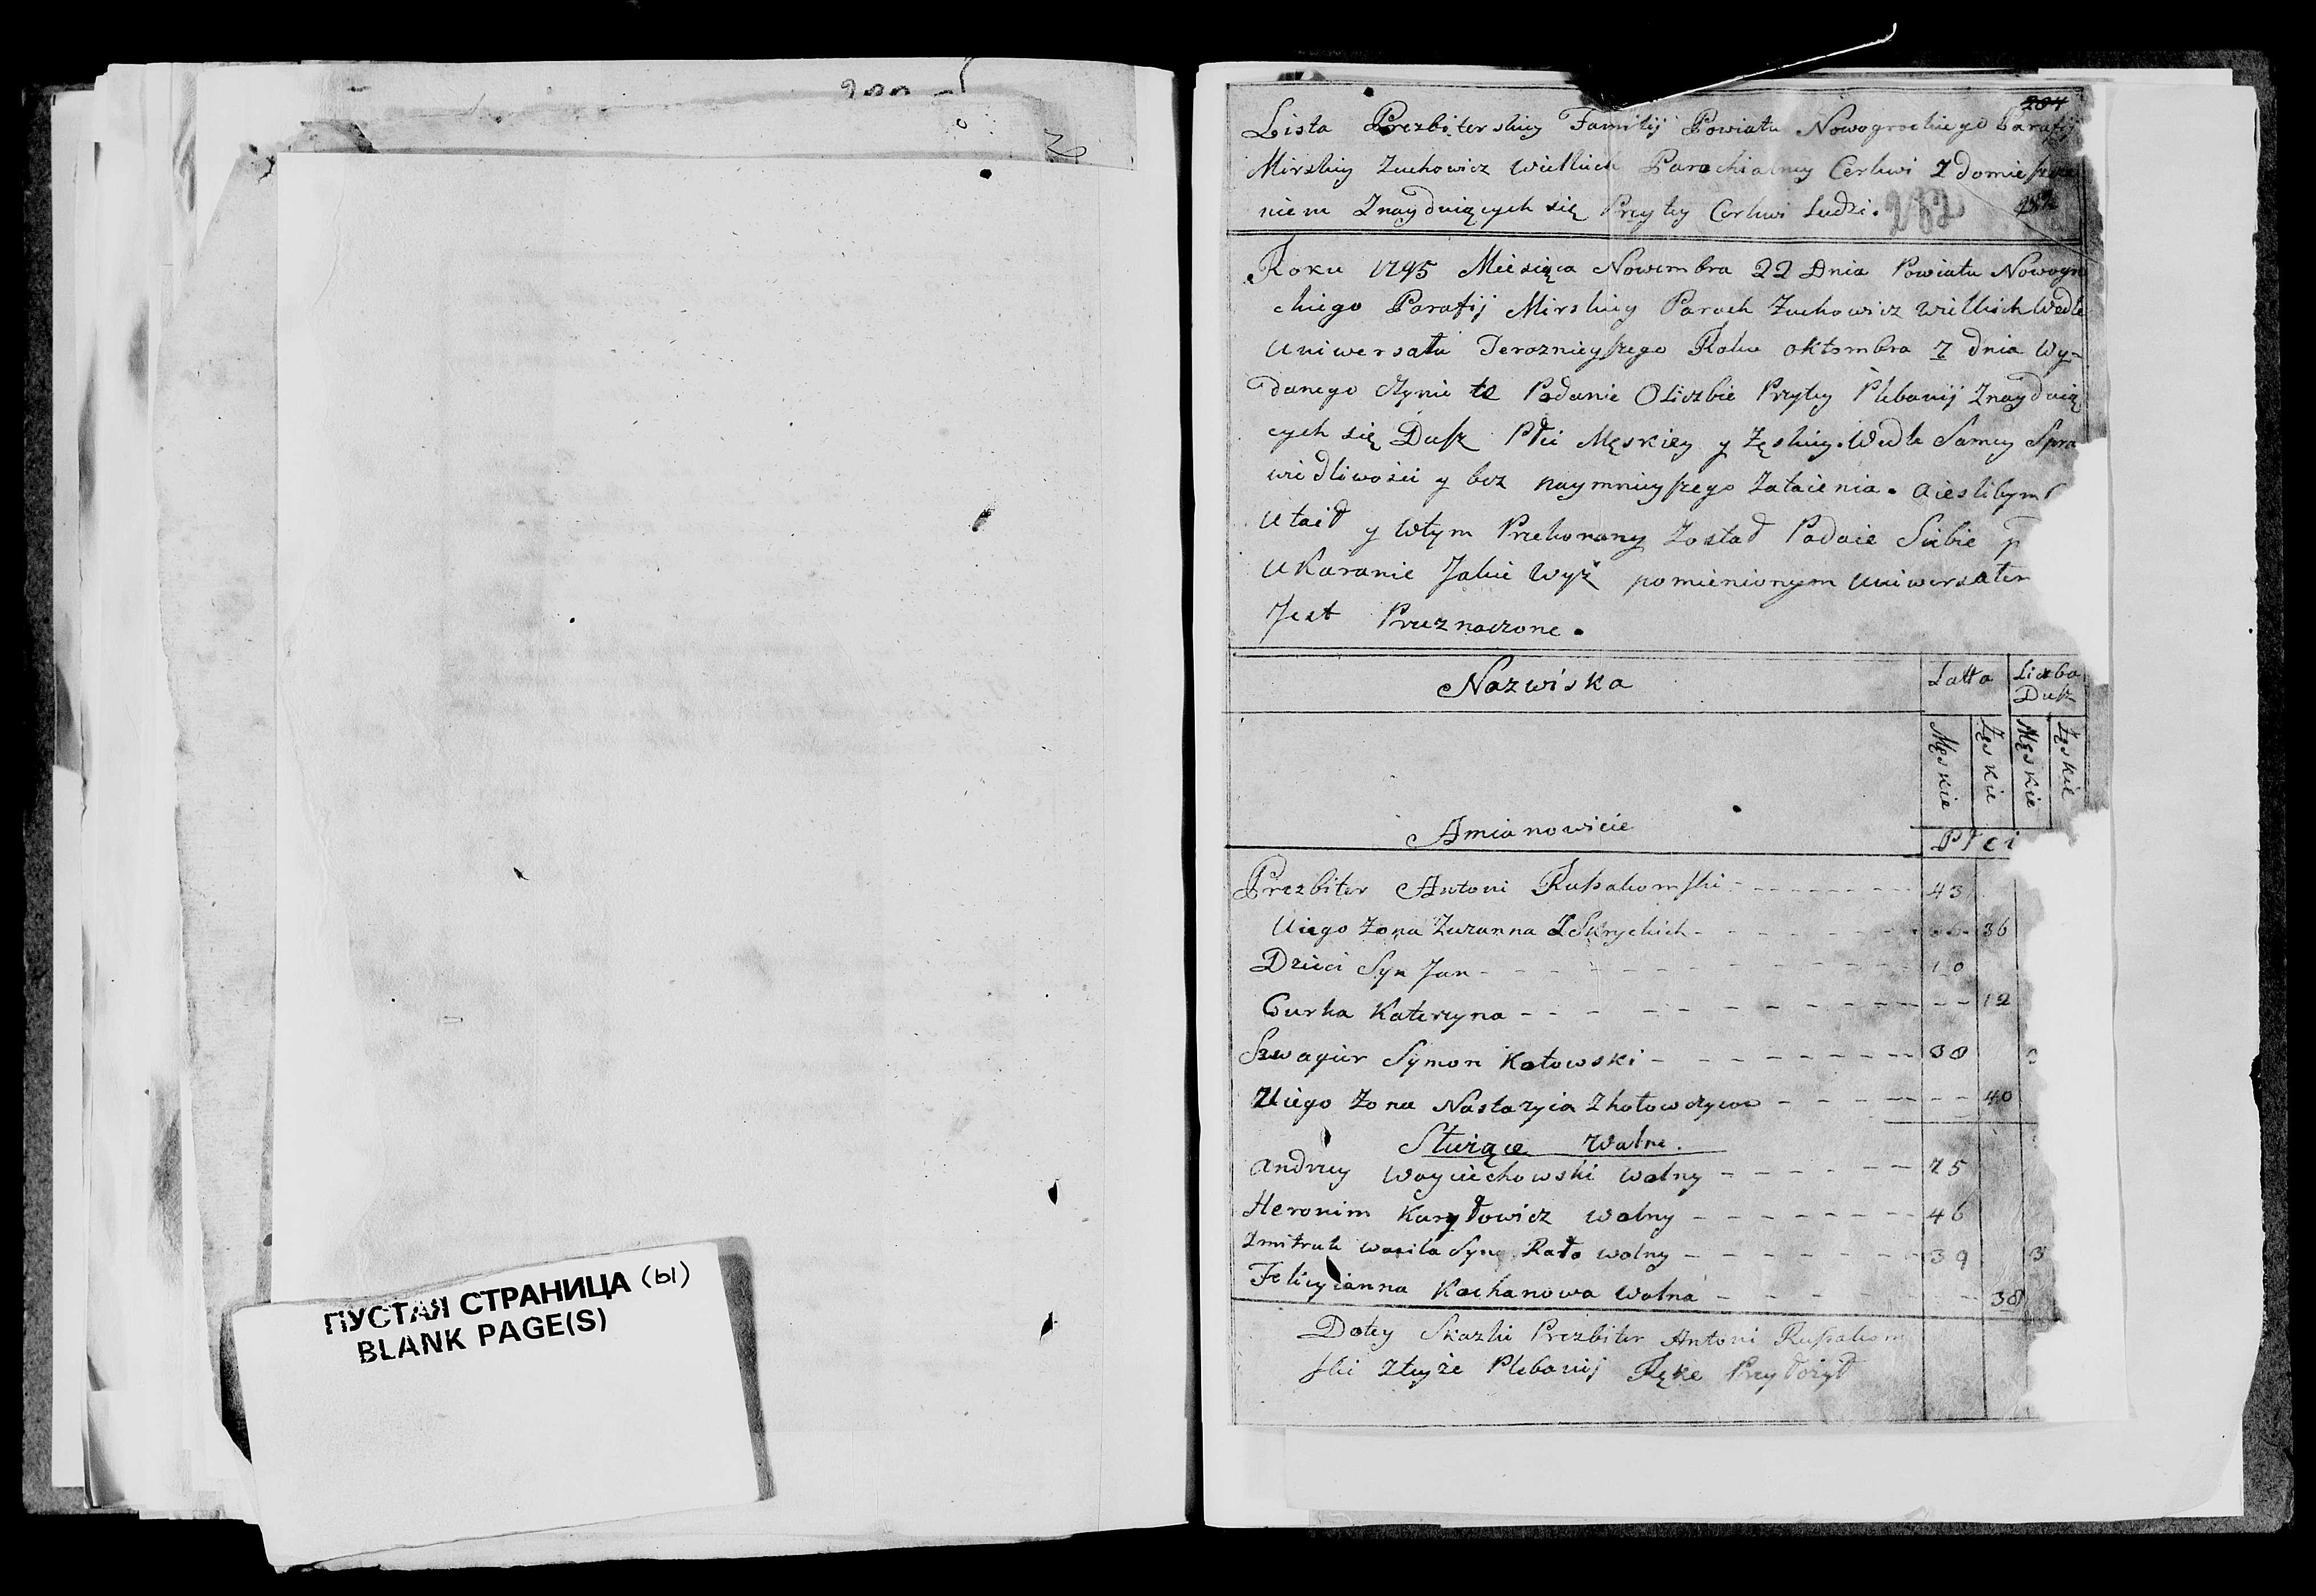 ПУСТАЯ СТРАНИЦА (ы)
BLANK PAGE(S)
204
Lista Prezbiterskiey Familij Powiatu Nowogrockiego Parafij
Mirskiey Zuchowicz Wielkich Parochialney Cerkwi z domie
niem Znayduiących się Przytey Cerkwi Ludzi.
282
Roku 1795 Miesiąca Nowembra 22 Dnia Powiatu Nowogro
ckiego Parafij Mirskiey Paroch Zuchowicz Wielkich Wedle
Uniwersału Teraznieyszego Roku oktombra 7 dnia Wy-
danego Czynie te Podanie O Liczbie Przytey Plebanij Znayduią
cych się Dusz Płci Męskiey y Żęskiey. Wedle Samey Spra
wiedliwosci y bez naymnieyszego Zataienia. a iesli bym
Utaił y Wtym Przekonany Został Podaie Siebie p
Ukaranie Jakie Wyż pomienionym Uniwersałem
Jest Przeznaczone.
Nazwiska
Latta
Liczba
Dusz
Męskie
Żęskie
Męskie
Żęskie
Amianowicie
Płci
Prezbiter Antoni Ruszakowski - 43
Uiego Żona Zuzanna Z Skryckich - 36
Dzieci Syn Jan - 10
Curka Katerzyna - 12
Szwagier Symon Kotowski - 38
Uiego Żona Nastazyia - 40
Służące Wolne.
Andrzey Woyciechowski Wolny - 25
Heronim Kuryłowicz Wolny - 46
Zmitruk Wasila Syn Rało wolny - 39 3
Felicyianna Kochanowa Wolna - 38
Dotey Skazki Prezbiter Antoni Ruszakow
ski Zteyże Plebanij Rękę Przyłożył